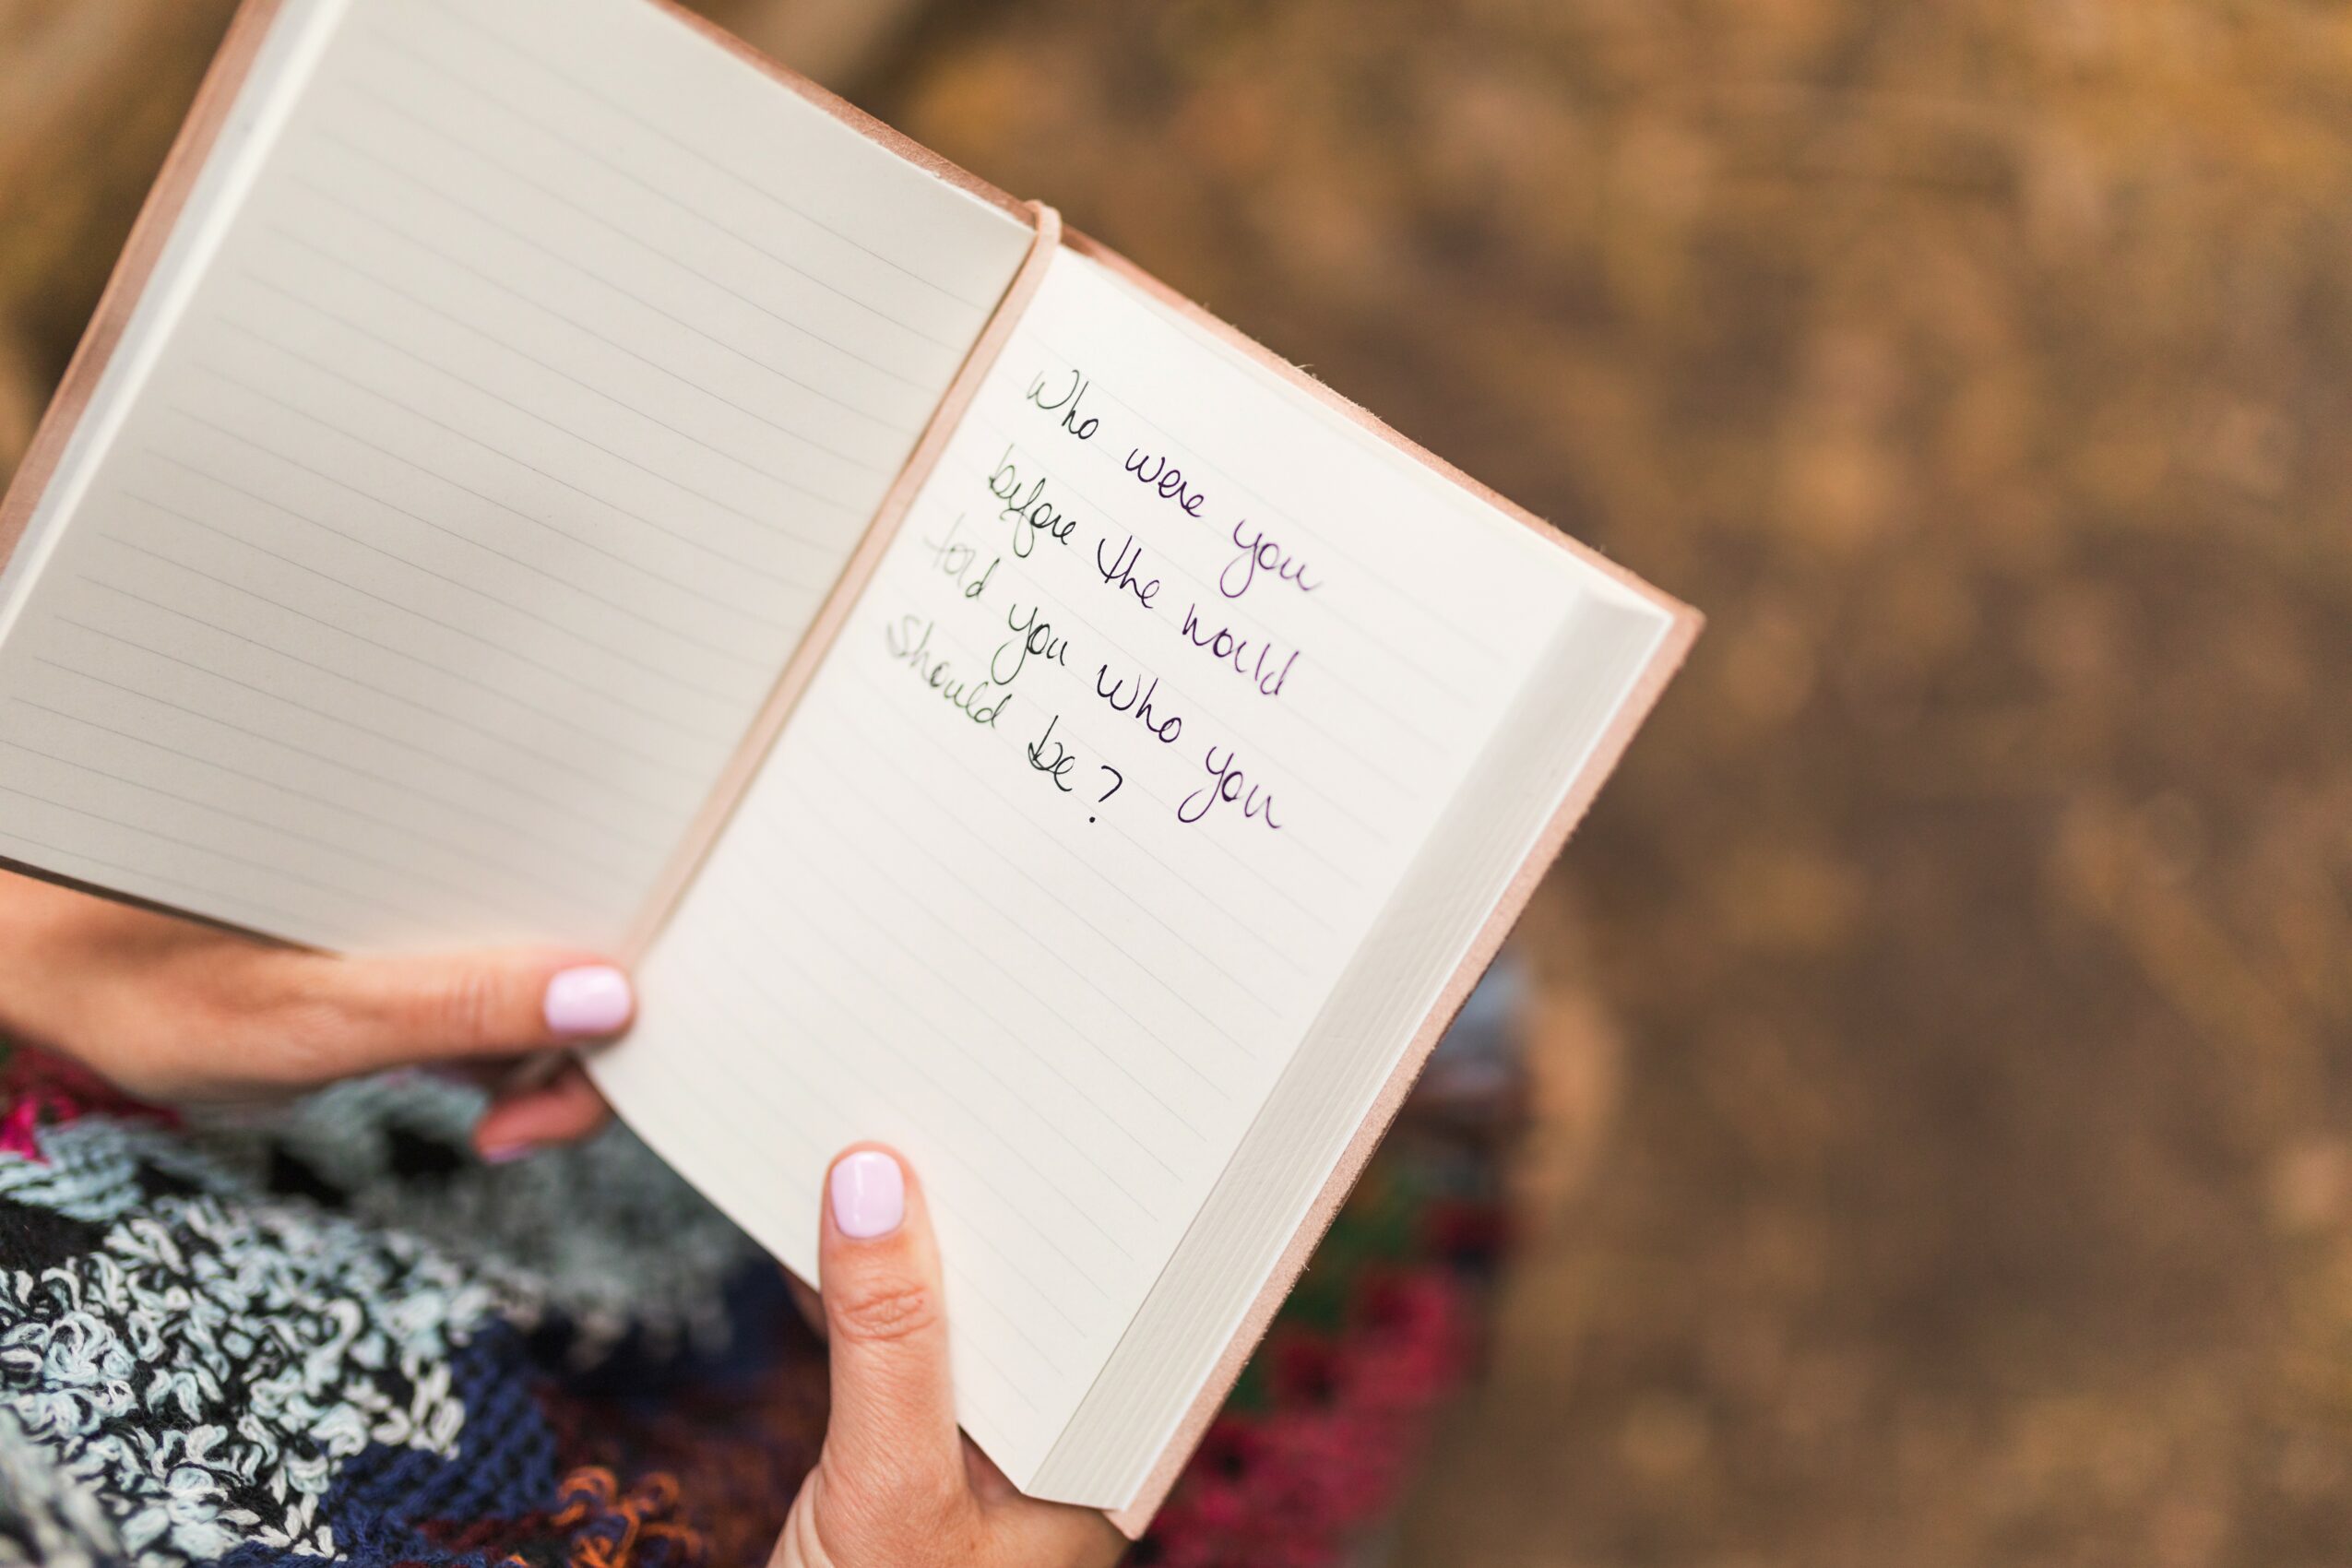 Who were you
before the world
told you who you
should be?